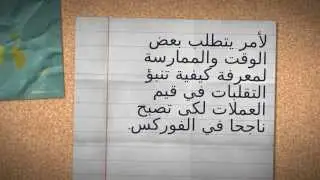 لأمر يتطلب بعض
الوقت والممارسة
لمعرفة كيفية تنبؤ
التقلبات في قيم
العملات لكى تصبح
ناجحا في الفوركس.